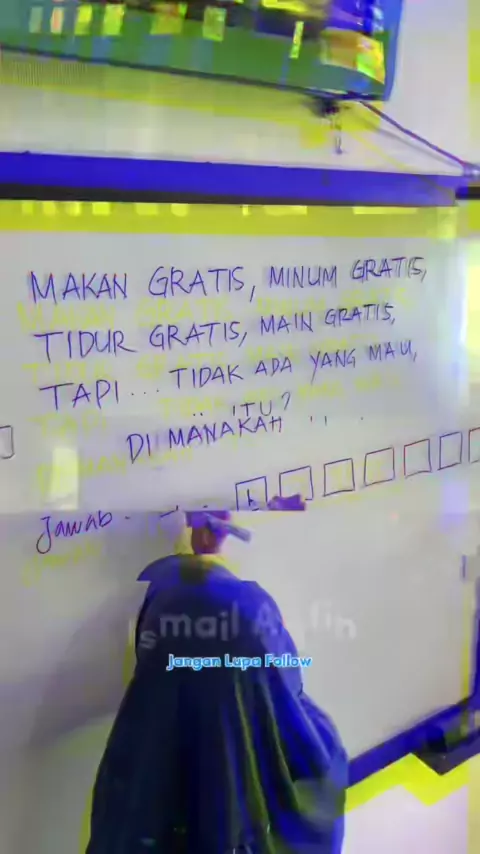 MAKAN GRATIS, MINUM GRATIS,
TIDUR GRATIS, MAIN GRATIS,
TAPI... TIDAK ADA YANG MAU,
DI MANAKAH ITU?
Jawab
Jangan Lupa Follow